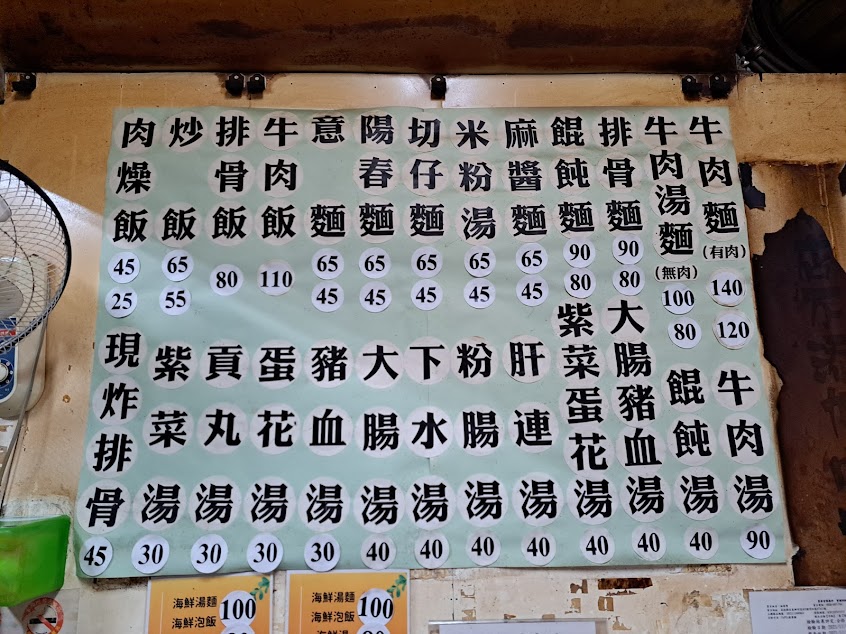 牛肉麵(有肉) 140 120
牛肉湯麵(無肉) 100 80
排骨麵 90 80
餛飩麵 90 80
麻醬麵 65 45
米粉湯 65 45
切仔麵 65 45
陽春麵 65 45
意麵 65 45
牛肉飯 110
排骨飯 80
炒飯 65 55
肉燥飯 45 25
牛肉湯 90
餛飩湯 40
大腸豬血湯 40
紫菜蛋花湯 40
肝連湯 40
粉腸湯 40
下水湯 40
大腸湯 40
豬血湯 30
蛋花湯 30
貢丸湯 30
紫菜湯 30
現炸排骨 45
海鮮湯麵 100
海鮮泡飯
海鮮湯麵 100
海鮮泡飯